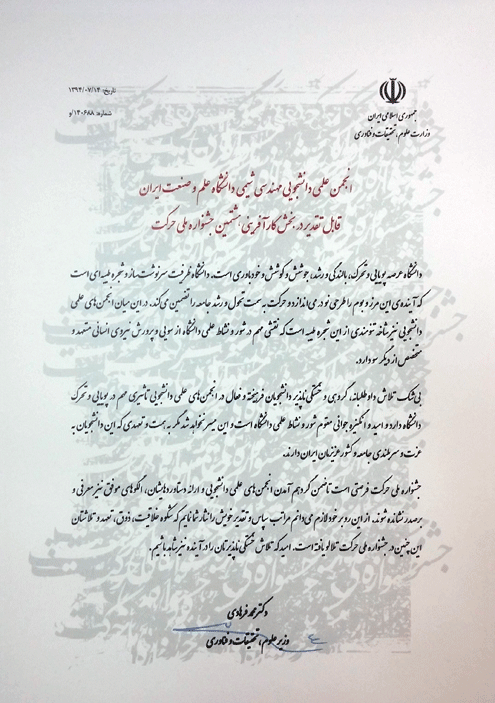 جمهوری اسلامی ایران
وزارت علوم، تحقیقات و فناوری
تاریخ: ۱۳۹۴/۰۷/۱۴
شماره: ۱۴۰۶۸۸/و
انجمن علمی دانشجویی مهندسی شیمی دانشگاه علم و صنعت ایران
قابل تقدیر در بخش کارآفرینی هشتمین جشنواره ملی حرکت
دانشگاه عرصه پویایی و تحرک، بالندگی و رشد، جوشش و کوشش و خودباوری است. دانشگاه ظرفیت سرنوشت‌ساز و شجره طیبه‌ای است
که آینده‌ی این مرز و بوم را طرحی نو در می‌اندازد و حرکت به سمت تحول و رشد جامعه را تضمین می‌کند. در این میان انجمن‌های علمی
دانشجویی نیز شاخه تنومندی از این شجره طیبه است که نقشی مهم در شور و نشاط علمی دانشگاه از سویی و پرورش نیروی انسانی متعهد و
متخصص از دیگر سو دارد.
بی‌شک تلاش داوطلبانه، گروهی و خستگی ناپذیر دانشجویان فرهیخته و فعال در انجمن‌های علمی دانشجویی تأثیری مهم در پویایی و تحرک
دانشگاه دارد و امید و انگیزه جوانی مقوم شور و نشاط علمی دانشگاه است و این میسر نخواهد شد مگر به همت و تعهدی که این دانشجویان به
عزت و سربلندی جامعه و کشور عزیزمان ایران دارند.
جشنواره ملی حرکت فرصتی است تا ضمن گرد هم آمدن انجمن‌های علمی دانشجویی و ارائه دستاوردهایشان، الگوهای موفق نیز معرفی و
بر صدر نشانده شوند. از این رو بر خود لازم می‌دانم مراتب سپاس و تقدیر خویش را نثار شما نمایم که شکوه خلاقیت، ذوق، تعهد و تلاشتان
این چنین در جشنواره ملی حرکت تلالو یافته است. امید که تلاش خستگی ناپذیرتان را در آینده نیز شاهد باشیم.
دکتر محمد فرهادی
وزیر علوم، تحقیقات و فناوری